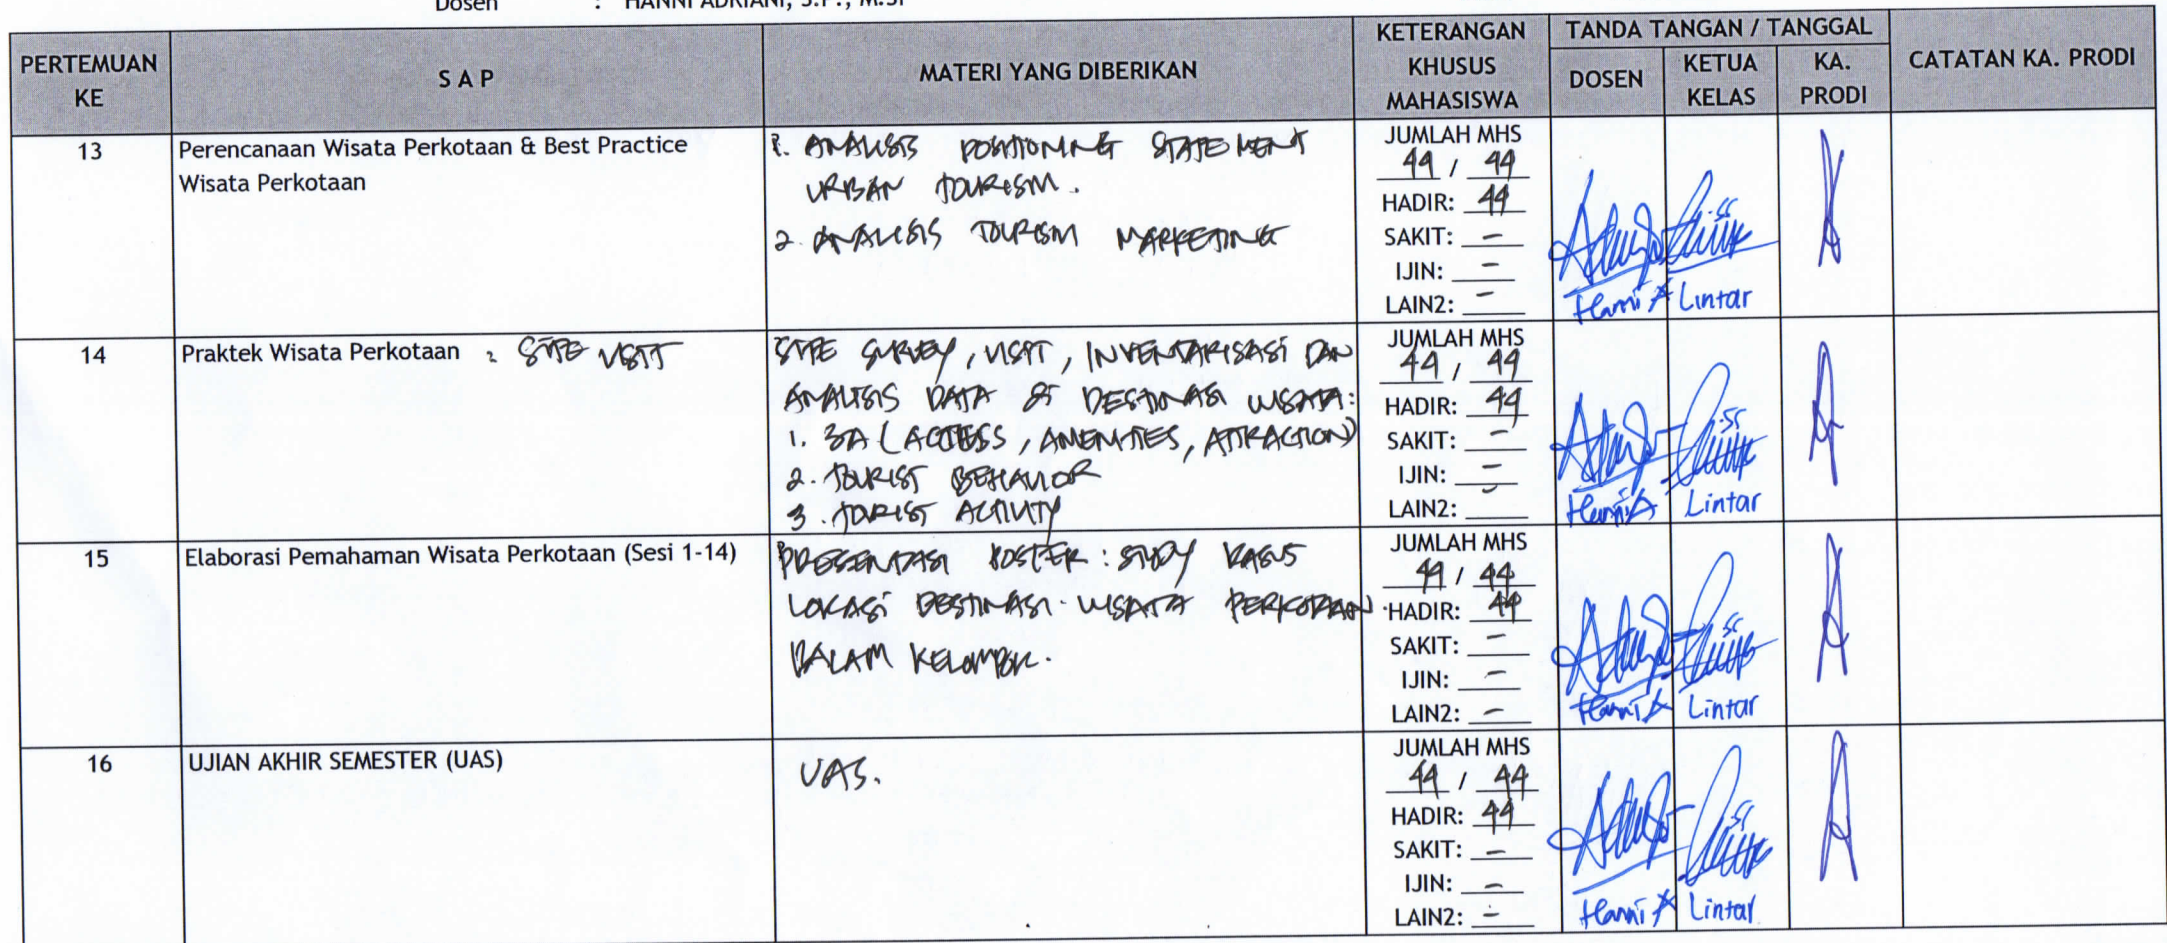 Dosen : HANNI ADRIANI, S.P., M.Si
PERTEMUAN KE
S A P
MATERI YANG DIBERIKAN
KETERANGAN KHUSUS MAHASISWA
TANDA TANGAN / TANGGAL
DOSEN
KETUA KELAS
KA. PRODI
CATATAN KA. PRODI
13
Perencanaan Wisata Perkotaan & Best Practice
Wisata Perkotaan
1. ANALISIS POSITIONING STATEMENT
URBAN TOURISM.
2. ANALISIS TOURISM MARKETING
JUMLAH MHS
44 / 44
HADIR: 44
SAKIT: -
IJIN: -
LAIN2: -
Hanni A
Lintar
14
Praktek Wisata Perkotaan : SITE VISIT
SITE SURVEY, VISIT, INVENTARISASI DAN
ANALISIS DATA DI DESTINASI WISATA:
1. 3A (ACCESS, AMENITIES, ATTRACTION)
2. TOURIST BEHAVIOR
3. TOURIST ACTIVITY
JUMLAH MHS
44 / 44
HADIR: 44
SAKIT: -
IJIN: -
LAIN2: -
Hanni A
Lintar
15
Elaborasi Pemahaman Wisata Perkotaan (Sesi 1-14)
PRESENTASI POSTER : STUDY KASUS
LOKASI DESTINASI WISATA PERKOTAAN
DALAM KELOMPOK.
JUMLAH MHS
44 / 44
HADIR: 44
SAKIT: -
IJIN: -
LAIN2: -
Hanni A
Lintar
16
UJIAN AKHIR SEMESTER (UAS)
UAS.
JUMLAH MHS
44 / 44
HADIR: 44
SAKIT: -
IJIN: -
LAIN2: -
Hanni A
Lintar